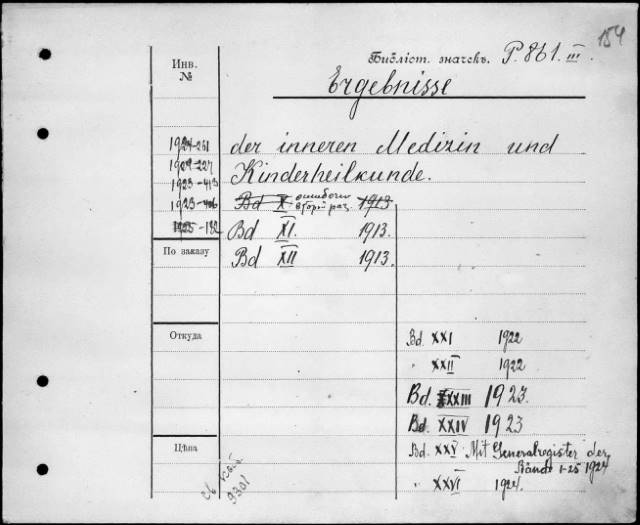 154
Библіот. значекъ. P. 861.III.
Инв.
№
Ergebnisse
1924-231
der inneren Medizin und
1929-227
Kinderheilkunde.
1923-413
Bd X ошибочн. 1913
второй раз
1923-406
1925-132
Bd XI. 1913.
По заказу
Bd XII 1913.
Откуда
Bd. XXI 1922
" XXII 1922
Bd. XXIII 1923.
Bd. XXIV 1923
Цѣна
Bd. XXV Mit Generalregister der
Bände 1-25 1924
" XXVI 1924.
9301